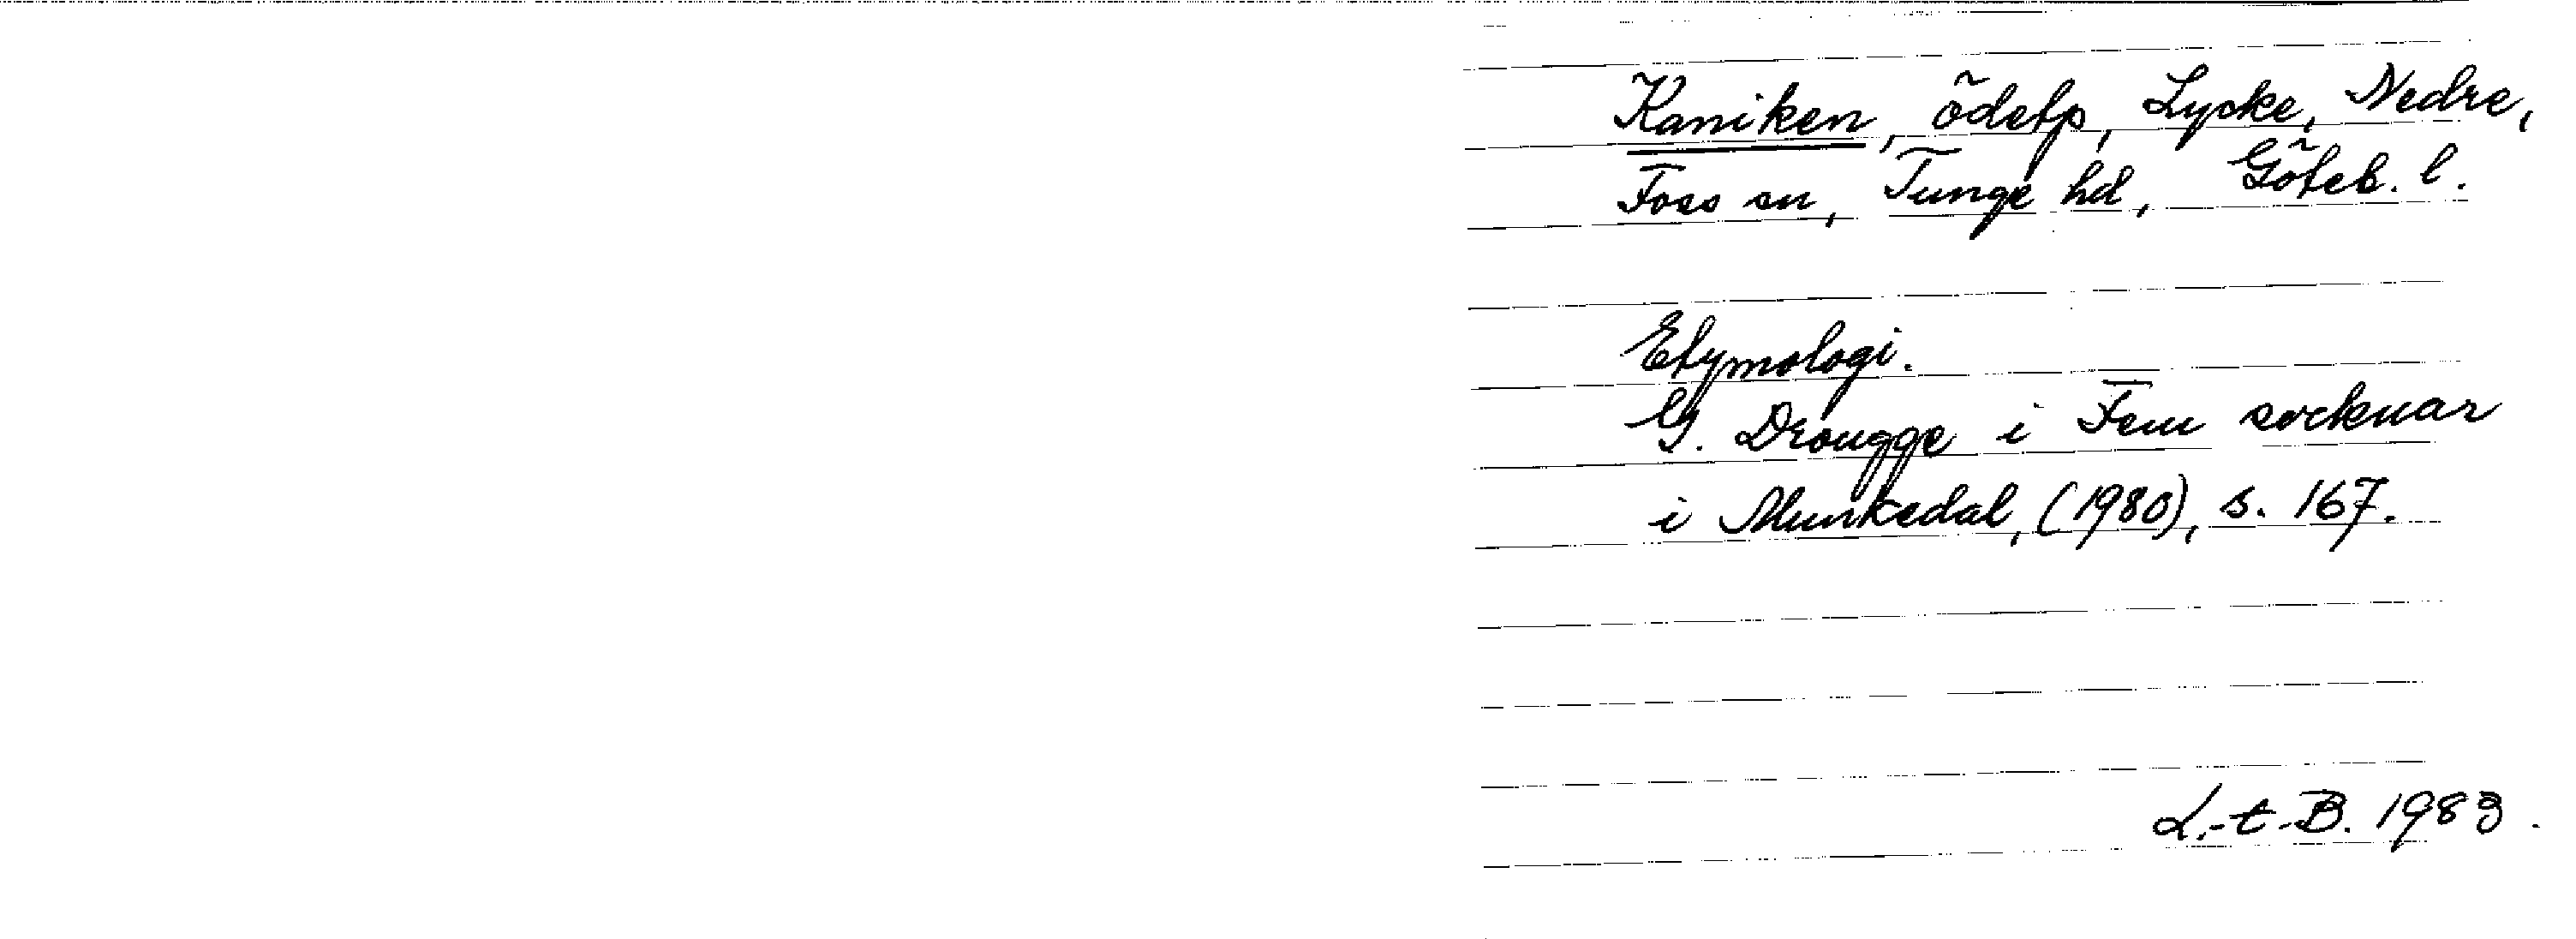 Kaniken, ödetp, Lycke, Nedre,
Foss sn, Tunge hd, Göteb. l.
Etymologi.
G. Drougge i Fem socknar
i Munkedal, (1980), s. 167.
L.-t.-B. 1983.